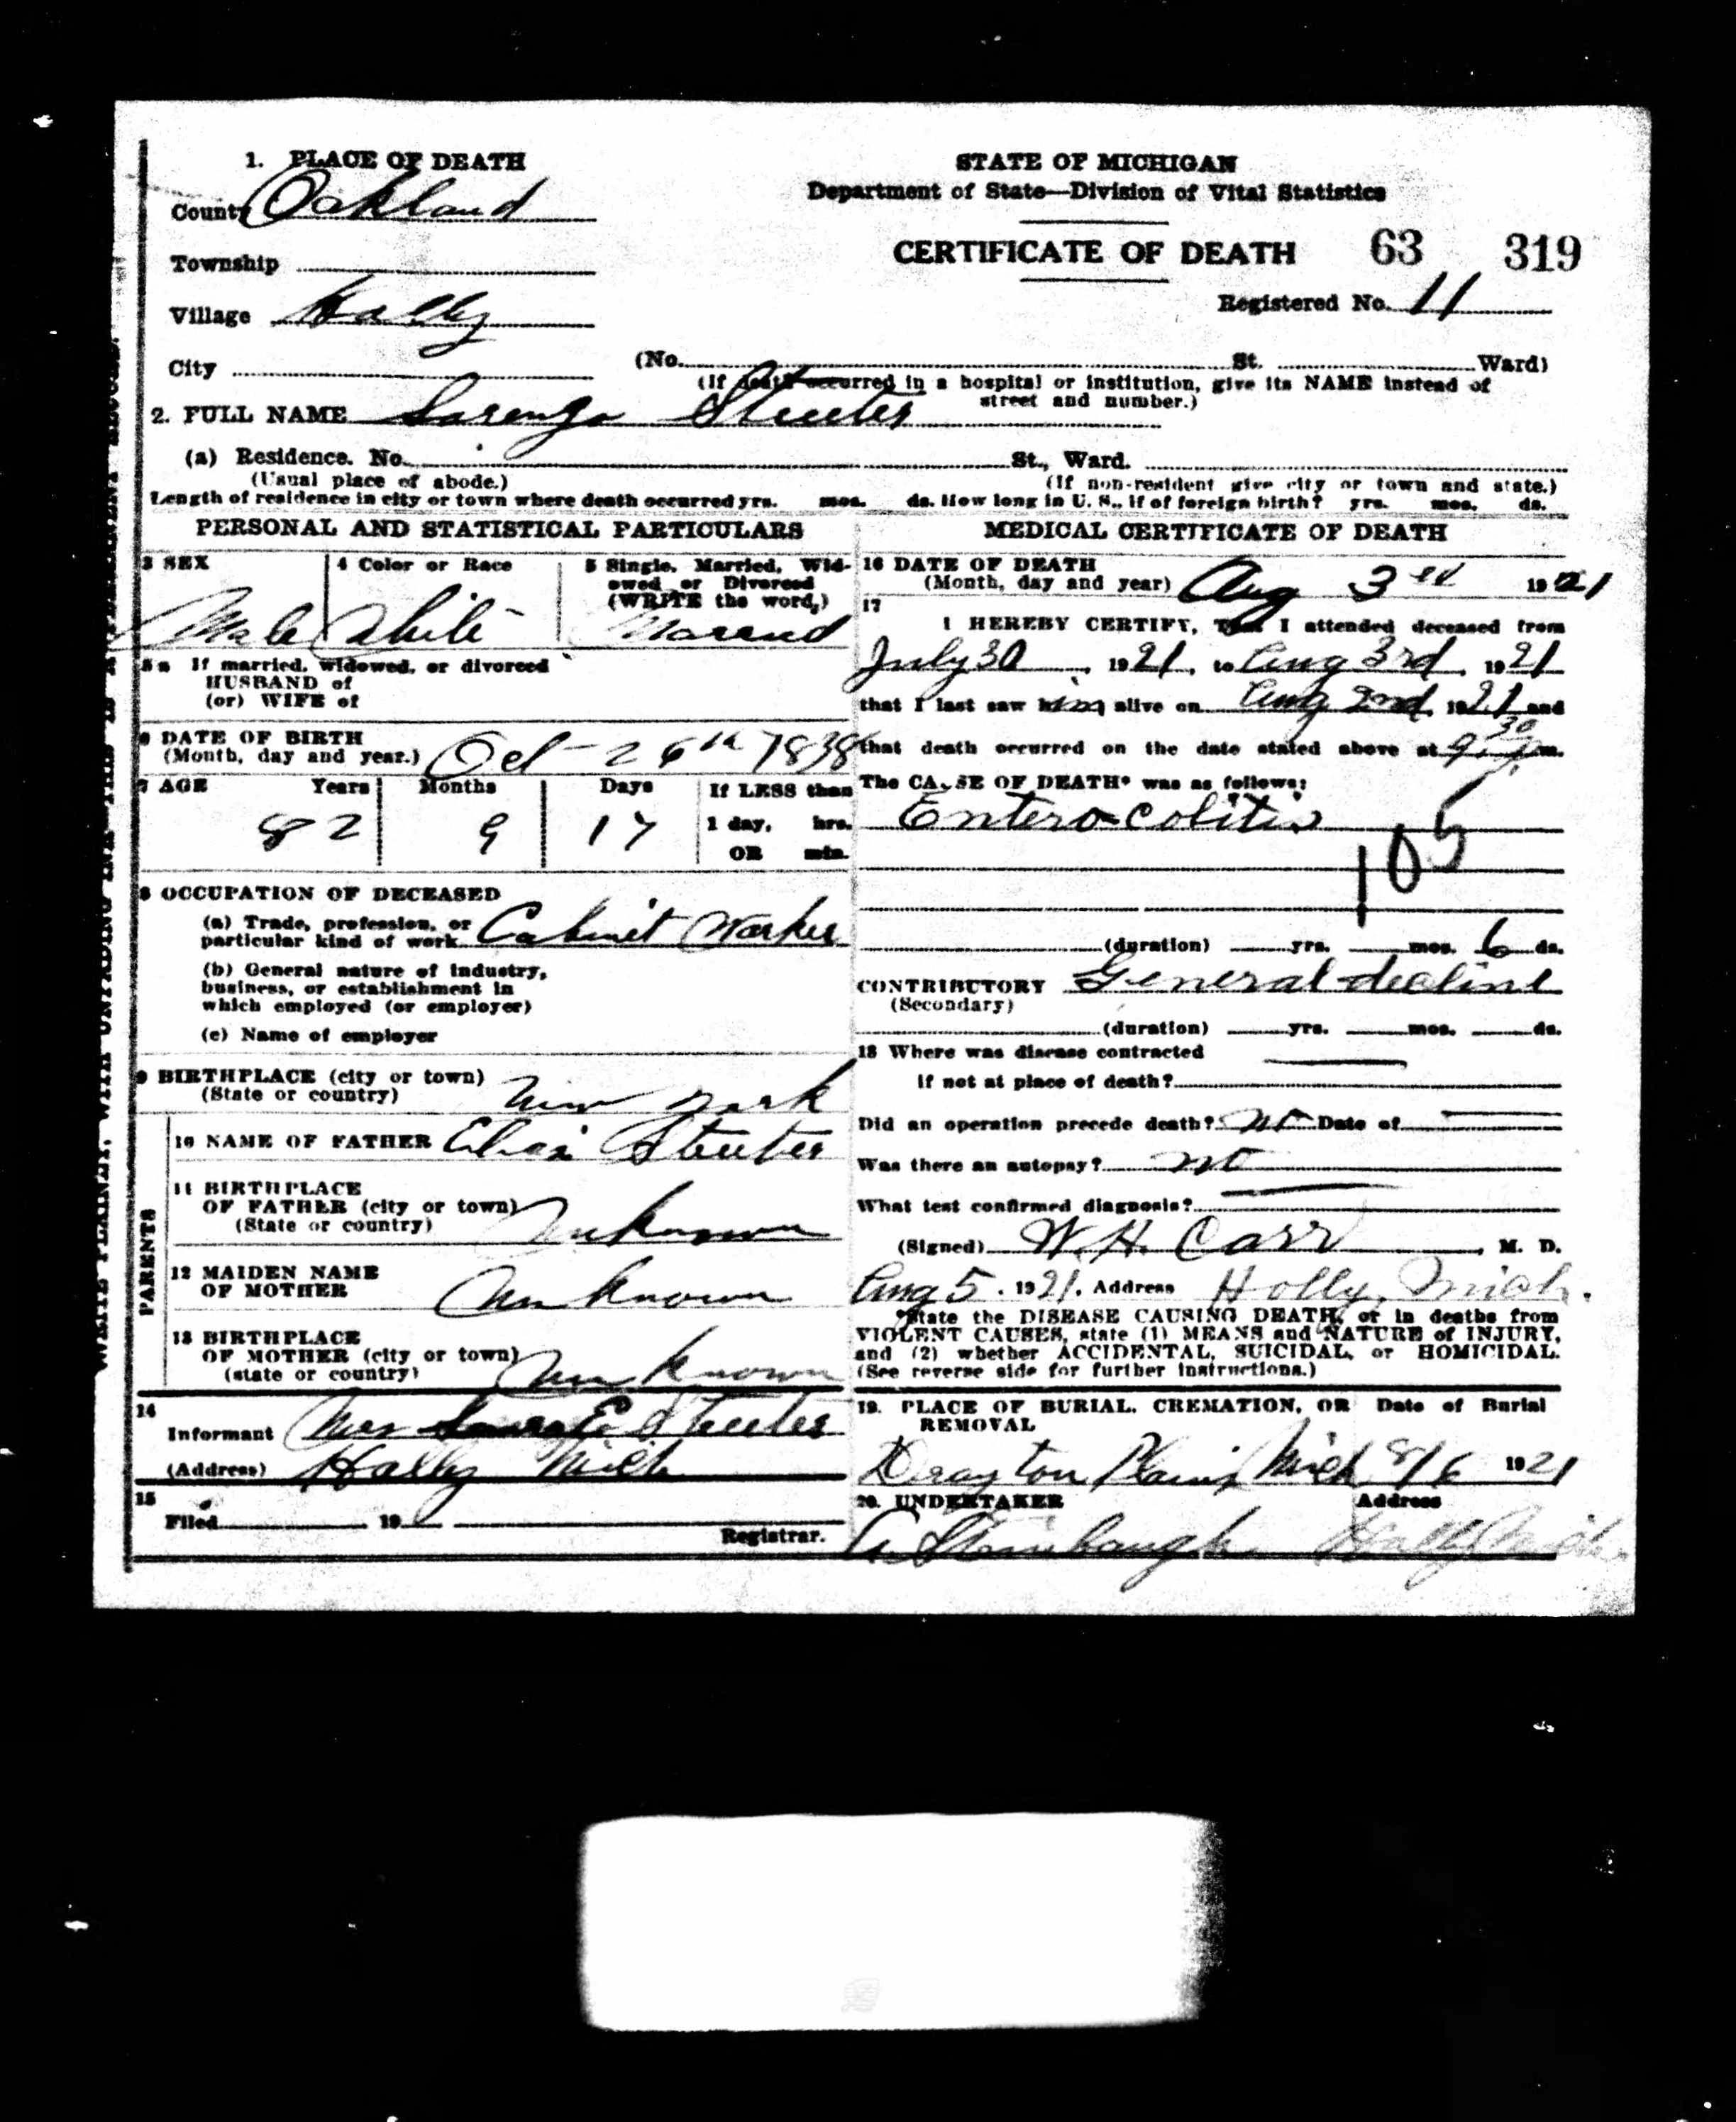 1. PLACE OF DEATH
County Oakland
Township
Village Holly
City
STATE OF MICHIGAN
Department of State—Division of Vital Statistics
CERTIFICATE OF DEATH 63 319
Registered No. 11
(No. St. Ward)
(If death occurred in a hospital or institution, give its NAME instead of
street and number.)
2. FULL NAME Lorenzo Streeter
(a) Residence. No. St., Ward.
(Usual place of abode.) (If non-resident give city or town and state.)
Length of residence in city or town where death occurred yrs. mos. ds. How long in U. S., if of foreign birth? yrs. mos. ds.
PERSONAL AND STATISTICAL PARTICULARS
3 SEX
Male
4 Color or Race
White
5 Single, Married, Wid-
owed or Divorced
(WRITE the word,)
Married
5a If married, widowed, or divorced
HUSBAND of
(or) WIFE of
6 DATE OF BIRTH
(Month, day and year.) Oct 26th 1838
7 AGE Years Months Days If LESS than
82 9 17 1 day, hrs.
OR min.
8 OCCUPATION OF DECEASED
(a) Trade, profession, or
particular kind of work Cabinet Worker
(b) General nature of industry,
business, or establishment in
which employed (or employer)
(c) Name of employer
9 BIRTHPLACE (city or town)
(State or country) New York
PARENTS
10 NAME OF FATHER Streeter
11 BIRTHPLACE
OF FATHER (city or town)
(State or country) Unknown
12 MAIDEN NAME
OF MOTHER Unknown
13 BIRTHPLACE
OF MOTHER (city or town)
(state or country) Unknown
14
Informant Mrs E Streeter
(Address) Holly Mich
15
Filed 19
Registrar.
MEDICAL CERTIFICATE OF DEATH
16 DATE OF DEATH
(Month, day and year) Aug 3rd 1921
17
I HEREBY CERTIFY, That I attended deceased from
July 30, 1921, to Aug 3rd, 1921
that I last saw him alive on Aug 2nd, 1921 and
that death occurred on the date stated above at 9.30 m.
The CAUSE OF DEATH* was as follows:
Entero-colitis
105
(duration) yrs. mos. 6 ds.
CONTRIBUTORY General decline
(Secondary)
(duration) yrs. mos. ds.
18 Where was disease contracted
if not at place of death?
Did an operation precede death? no Date of
Was there an autopsy? no
What test confirmed diagnosis?
(Signed) W. H. Carr, M. D.
Aug 5. 1921. Address Holly, Mich.
*State the DISEASE CAUSING DEATH, or in deaths from
VIOLENT CAUSES, state (1) MEANS and NATURE of INJURY,
and (2) whether ACCIDENTAL, SUICIDAL, or HOMICIDAL.
(See reverse side for further instructions.)
19. PLACE OF BURIAL, CREMATION, OR Date of Burial
REMOVAL
Drayton Plains Mich 8/6 1921
20. UNDERTAKER Address
Holly Mich.